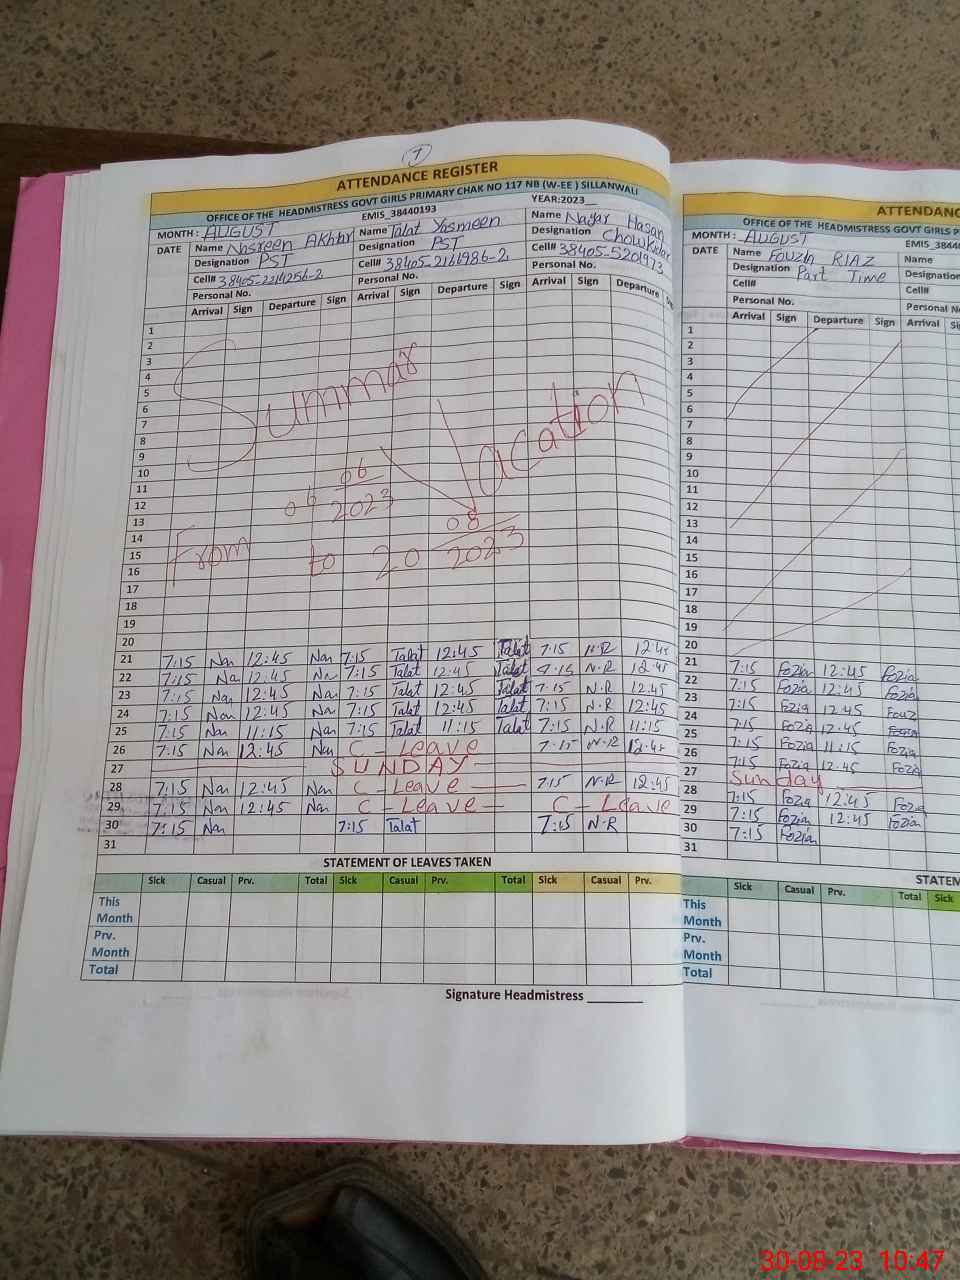 1
ATTENDANCE REGISTER
OFFICE OF THE HEADMISTRESS GOVT GIRLS PRIMARY CHAK NO 117 NB (W-EE ) SILLANWALI
EMIS_38440193 YEAR:2023__
MONTH : AUGUST
DATE Name Nasreen Akhtar Name Talat Yasmeen Name Nayar Hasan
Designation PST Designation PST Designation Chowkidar
Cell# 38405-2214256-2 Cell# 38405-2161986-2 Cell# 38405-5201973
Personal No. Personal No. Personal No.
Arrival Sign Departure Sign Arrival Sign Departure Sign Arrival Sign Departure
1
2
3
4
5
6
7
8
9
10
11
12
13
14
15
16
17
18
19
20
Summar Vacation
From 06 06 2023 to 20 08 2023
21 7:15 Nan 12:45 Nan 7:15 Talat 12:45 Talat 7:15 N.R 12:45
22 7:15 Na 12:45 Na 7:15 Talat 12:45 Talat 7:15 N.R 12:45
23 7:15 Nan 12:45 Nan 7:15 Talat 12:45 Talat 7:15 N.R 12:45
24 7:15 Nan 12:45 Nan 7:15 Talat 12:45 Talat 7:15 N.R 12:45
25 7:15 Nan 11:15 Nan 7:15 Talat 11:15 Talat 7:15 N.R 11:15
26 7:15 Nan 12:45 Nan C - Leave 7:15 N.R 12:45
27 SUNDAY
28 7:15 Nan 12:45 Nan C - Leave 7:15 N.R 12:45
29 7:15 Nan 12:45 Nan C - Leave C - Leave
30 7:15 Nan 7:15 Talat 7:15 N.R
31
STATEMENT OF LEAVES TAKEN
Sick Casual Prv. Total Sick Casual Prv. Total Sick Casual Prv.
This Month
Prv. Month
Total
Signature Headmistress ________
ATTENDANC
OFFICE OF THE HEADMISTRESS GOVT GIRLS P
EMIS_3844
MONTH : AUGUST
DATE Name Fouzia RIAZ Name
Designation Part Time Designation
Cell# Cell#
Personal No. Personal N
Arrival Sign Departure Sign Arrival Sign
1
2
3
4
5
6
7
8
9
10
11
12
13
14
15
16
17
18
19
20
21 7:15 Fozia 12:45 Fozia
22 7:15 Fozia 12:45 Fozia
23 7:15 Fozia 12:45 Fouz
24 7:15 Fozia 12:45 Fozia
25 7:15 Fozia 11:15 Fozia
26 7:15 Fozia 12:45 Fozia
27 Sunday
28 7:15 Fozia 12:45 Fozia
29 7:15 Fozia 12:45 Fozia
30 7:15 Fozian
31
STATEM
Sick Casual Prv. Total Sick
This Month
Prv. Month
Total
30-08-23 10:47